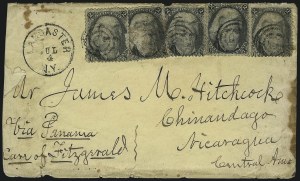 LANCASTER
JUL
4
N.Y.
Mr James M. Hitchcock
Chinandago
Via Panama
Nicaragua
Care of Fitzgerald
Central Ame